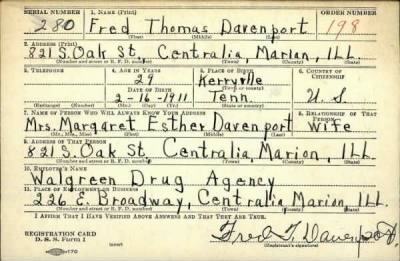 SERIAL NUMBER 1. NAME (Print) ORDER NUMBER
280 Fred Thomas Davenport 198
(First) (Middle) (Last)
2. ADDRESS (Print)
821 S. Oak St, Centralia, Marion, ILL.
(Number and street or R. F. D. number) (Town) (County) (State)
3. TELEPHONE 4. AGE IN YEARS 5. PLACE OF BIRTH 6. COUNTRY OF CITIZENSHIP
29 Kerryville
DATE OF BIRTH (Town or county)
2-16-1911 Tenn. U. S.
(Exchange) (Number) (Mo.) (Day) (Yr.) (State or country)
7. NAME OF PERSON WHO WILL ALWAYS KNOW YOUR ADDRESS 8. RELATIONSHIP OF THAT PERSON
Mrs. Margaret Esther Davenport wife
(Mr., Mrs., Miss) (First) (Middle) (Last)
9. ADDRESS OF THAT PERSON
821 S. Oak St, Centralia, Marion, ILL.
(Number and street or R. F. D. number) (Town) (County) (State)
10. EMPLOYER'S NAME
Walgreen Drug Agency
11. PLACE OF EMPLOYMENT OR BUSINESS
226 E. Broadway, Centralia, Marion, ILL.
(Number and street or R. F. D. number) (Town) (County) (State)
I AFFIRM THAT I HAVE VERIFIED ABOVE ANSWERS AND THAT THEY ARE TRUE.
REGISTRATION CARD
D. S. S. Form 1 (over) Fred T. Davenport
(Registrant's signature)